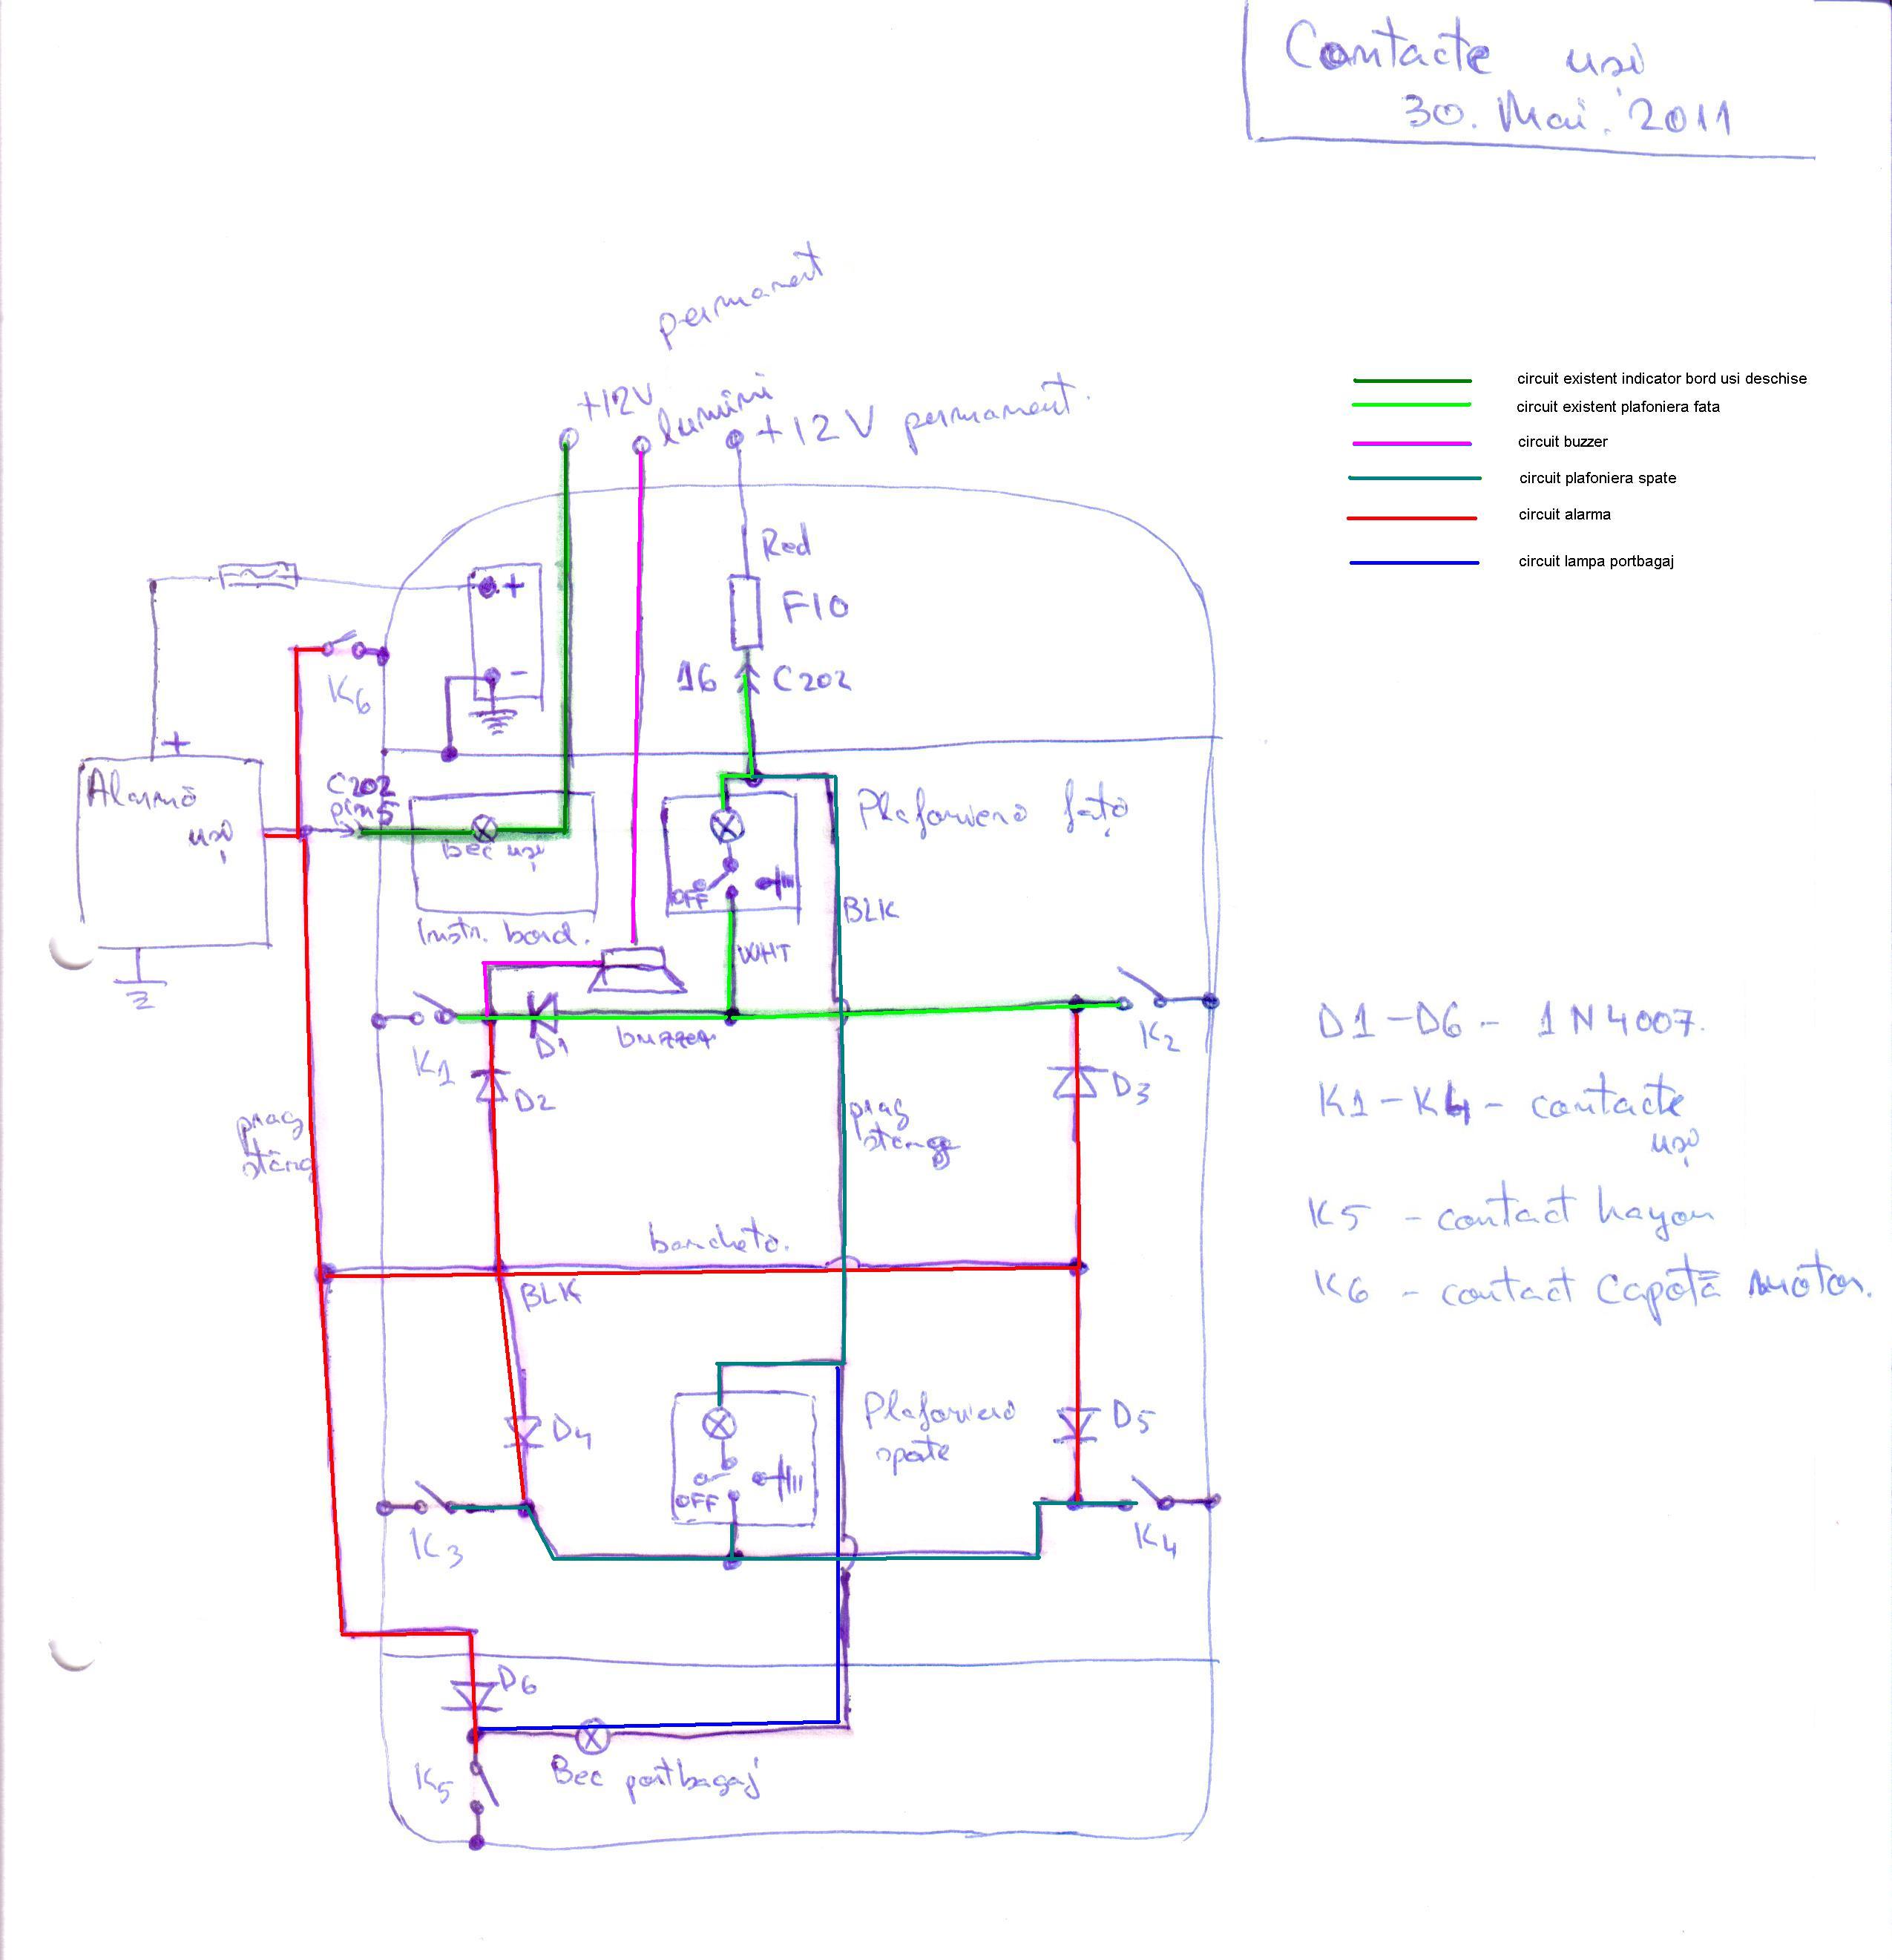 Contacte uși
30. Mai. 2011
permanent
+12V
lumini
+12V permanent.
circuit existent indicator bord usi deschise
circuit existent plafoniera fata
circuit buzzer
circuit plafoniera spate
circuit alarma
circuit lampa portbagaj
Red
F10
+
-
16 C202
K6
+
Alarmă
uși
C202
pin5
bec uși
Instr. bord.
Plafonieră față
OFF
BLK
WHT
K1
D1
buzzer
K2
D2
D3
prag
stâng
prag
stâng
banchetă.
BLK
D4
Plafonieră
spate
D5
OFF
K3
K4
D6
K5
Bec portbagaj
D1-D6 - 1N4007.
K1-K4 - contacte
uși
K5 - contact hayon
K6 - contact capotă motor.